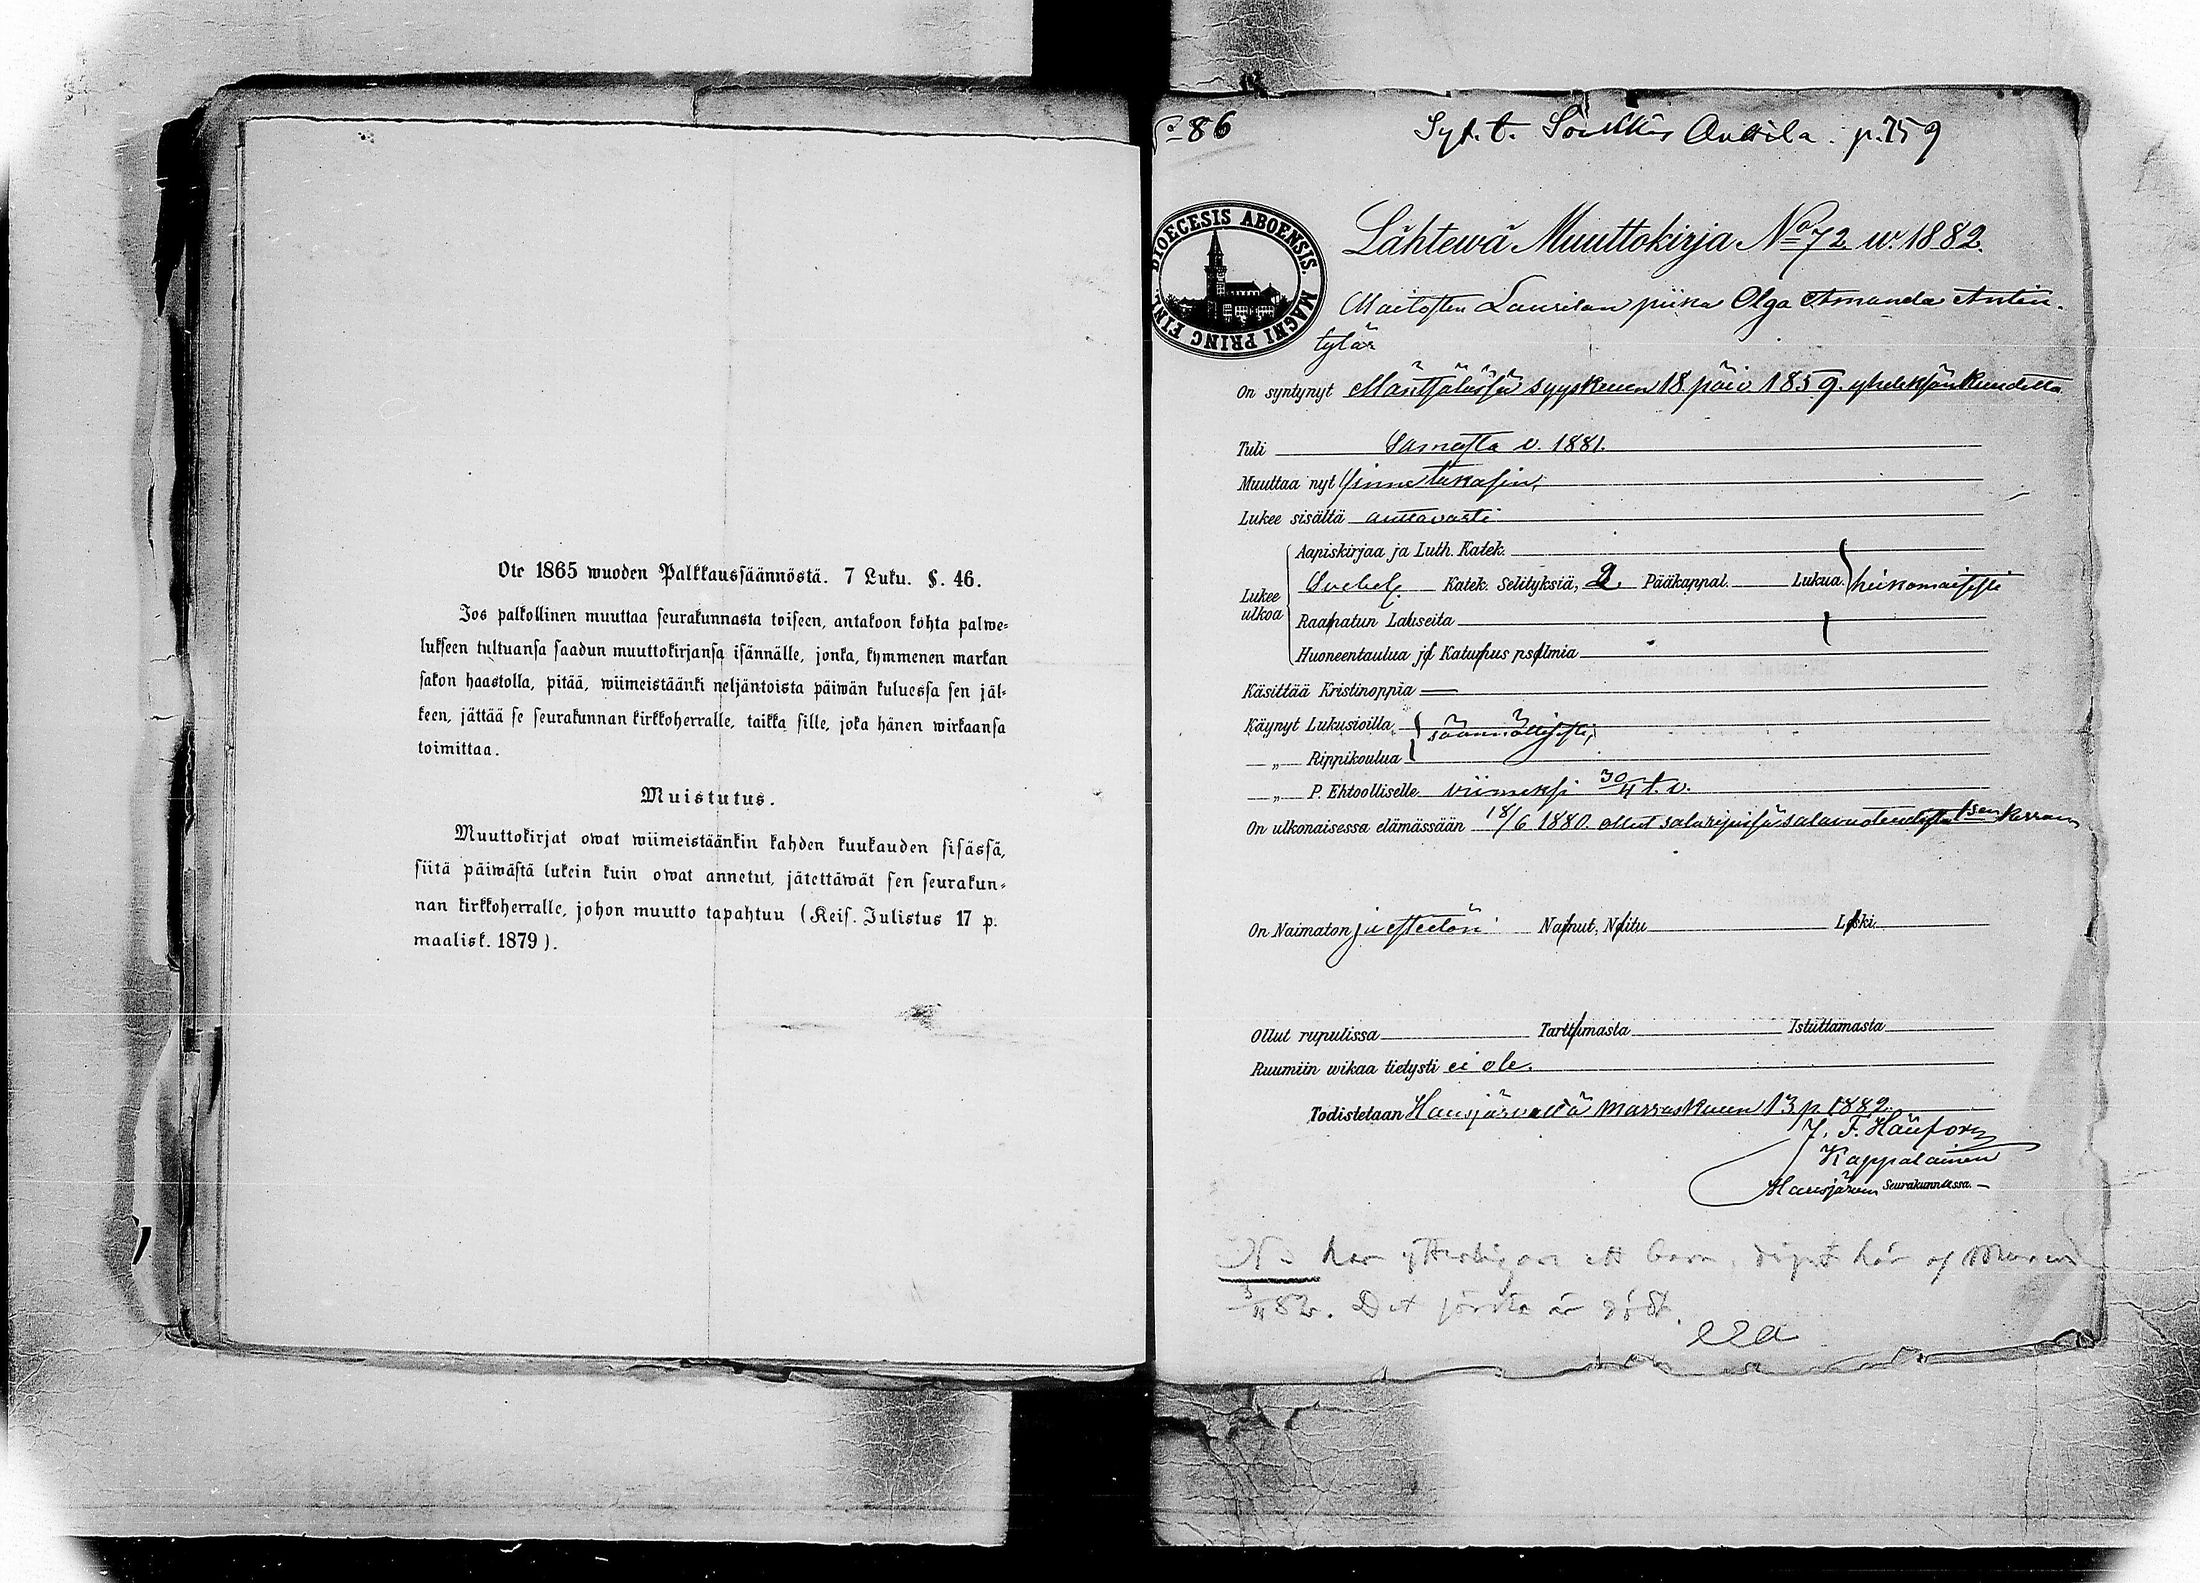 Ote 1865 wuoden Palkkaussäännöstä. 7 Luku. §. 46.
Jos palkollinen muuttaa seurakunnasta toiseen, antakoon kohta palwe=
lukseen tultuansa saadun muuttokirjansa isännälle, jonka, kymmenen markan
sakon haastolla, pitää, wiimeistäänki neljäntoista päiwän kuluessa sen jäl=
keen, jättää se seurakunnan kirkkoherralle, taikka sille, joka hänen wirkaansa
toimittaa.
Muistutus.
Muuttokirjat owat wiimeistäänkin kahden kuukauden sisässä,
siitä päiwästä lukein kuin owat annetut, jätettäwät sen seurakun=
nan kirkkoherralle, johon muutto tapahtuu (Keis. Julistus 17 p.
maalisk. 1879).
86
Syt. t. Anttila. p. 759
DIOECESIS ABOENSIS. MAGNI PRINC FINL.
Lähtewä Muuttokirja No 72 w. 1882.
Laurilan piika Olga Amanda Antin-
tytär
On syntynyt Mäntsälässä syyskuun 18. päiv 1859. yhdeksänkuudetta
Tuli Samasta v. 1881.
Muuttaa nyt sinne takasin,
Lukee sisältä auttavasti
Aapiskirjaa ja Luth. Katek.
Lukee ulkoa
Svebel. Katek. Selityksiä, 2. Pääkappal. Lukua. heikomaisesti
Raamatun Lauseita
Huoneentaulua ja Katumus psalmia
Käsittää Kristinoppia —
Käynyt Lukusioilla säännöllisesti,
„ Rippikoulua
„ P. Ehtoolliselle viimeksi 30/4 t. v.
On ulkonaisessa elämässään 18/6 1880. ollut salaripissä salavuoteudesta 1sen kerran
On Naimaton ja esteetön Nainut, Naitu Leski
Ollut rupulissa Tarttumasta Istuttamasta
Ruumiin wikaa tietysti ei ole.
Todistetaan Hausjärvellä marraskuun 13 p 1882.
J. F.
Kappalainen
Hausjärven Seurakunnassa. —
har ytterligare ett barn, här af
82. Det första är dödt.